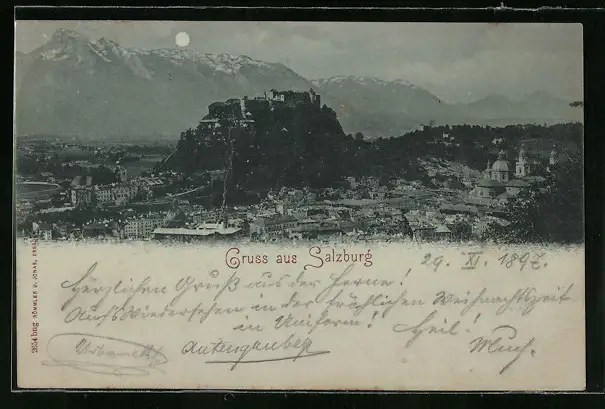 Gruss aus Salzburg
29. XI 1897.
Herzlichen Gruß aus der Ferne!
Auf Wiedersehen in der fröhlichen Weihnachtszeit
in Uniform! Heil!
2654 bng RÖMMLER & JONAS, DRESD